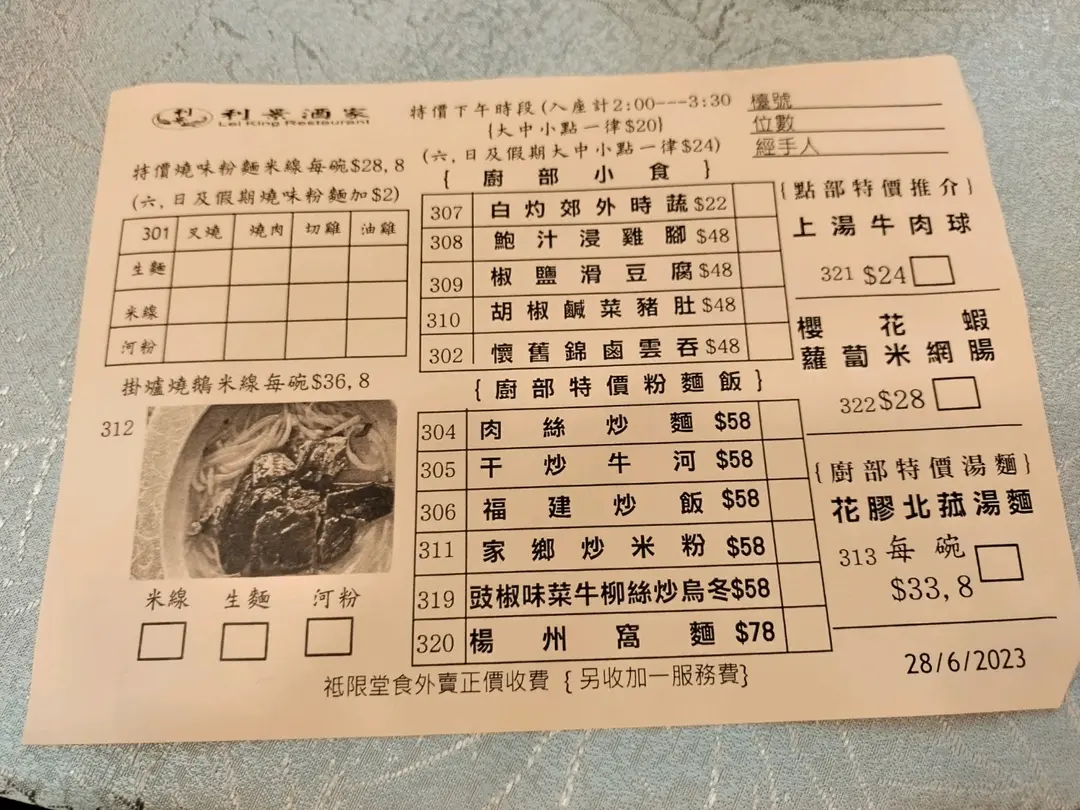 利景酒家
Lei King Restaurant
特價燒味粉麵米線每碗$28,8
(六,日及假期燒味粉麵加$2)
301 叉燒 燒肉 切雞 油雞
生麵
米線
河粉
掛爐燒鵝米線每碗$36,8
312
米線 生麵 河粉
特價下午時段(入座計2:00---3:30
{大中小點一律$20}
(六,日及假期大中小點一律$24)
{廚部小食}
307 白灼郊外時蔬$22
308 鮑汁浸雞腳$48
309 椒鹽滑豆腐$48
310 胡椒鹹菜豬肚$48
302 懷舊錦鹵雲吞$48
{廚部特價粉麵飯}
304 肉絲炒麵 $58
305 干炒牛河 $58
306 福建炒飯 $58
311 家鄉炒米粉 $58
319 豉椒味菜牛柳絲炒烏冬$58
320 楊州窩麵 $78
檯號
位數
經手人
{點部特價推介}
上湯牛肉球
321 $24
櫻花蝦
蘿蔔米網腸
322$28
{廚部特價湯麵}
花膠北菰湯麵
313 每碗
$33,8
28/6/2023
祗限堂食外賣正價收費 {另收加一服務費}